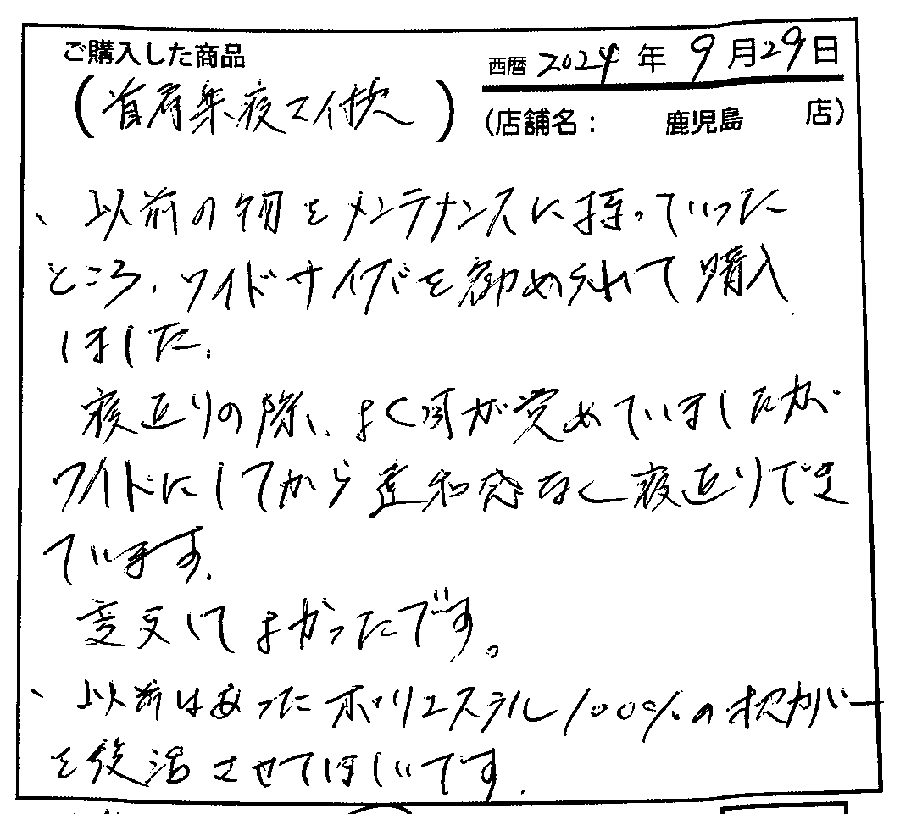 ご購入した商品
西暦 2024 年 9 月 29 日
(首肩楽寝マイ枕)
(店舗名: 鹿児島 店)
、以前の物をメンテナンスに持っていった
ところ、ワイドサイズを勧められて購入
しました。
寝返りの際、よく目が覚めていましたが
ワイドにしてから違和感なく寝返りでき
ています。
変更してよかったです。
、以前はあったポリエステル100%の枕カバー
を復活させてほしいです。